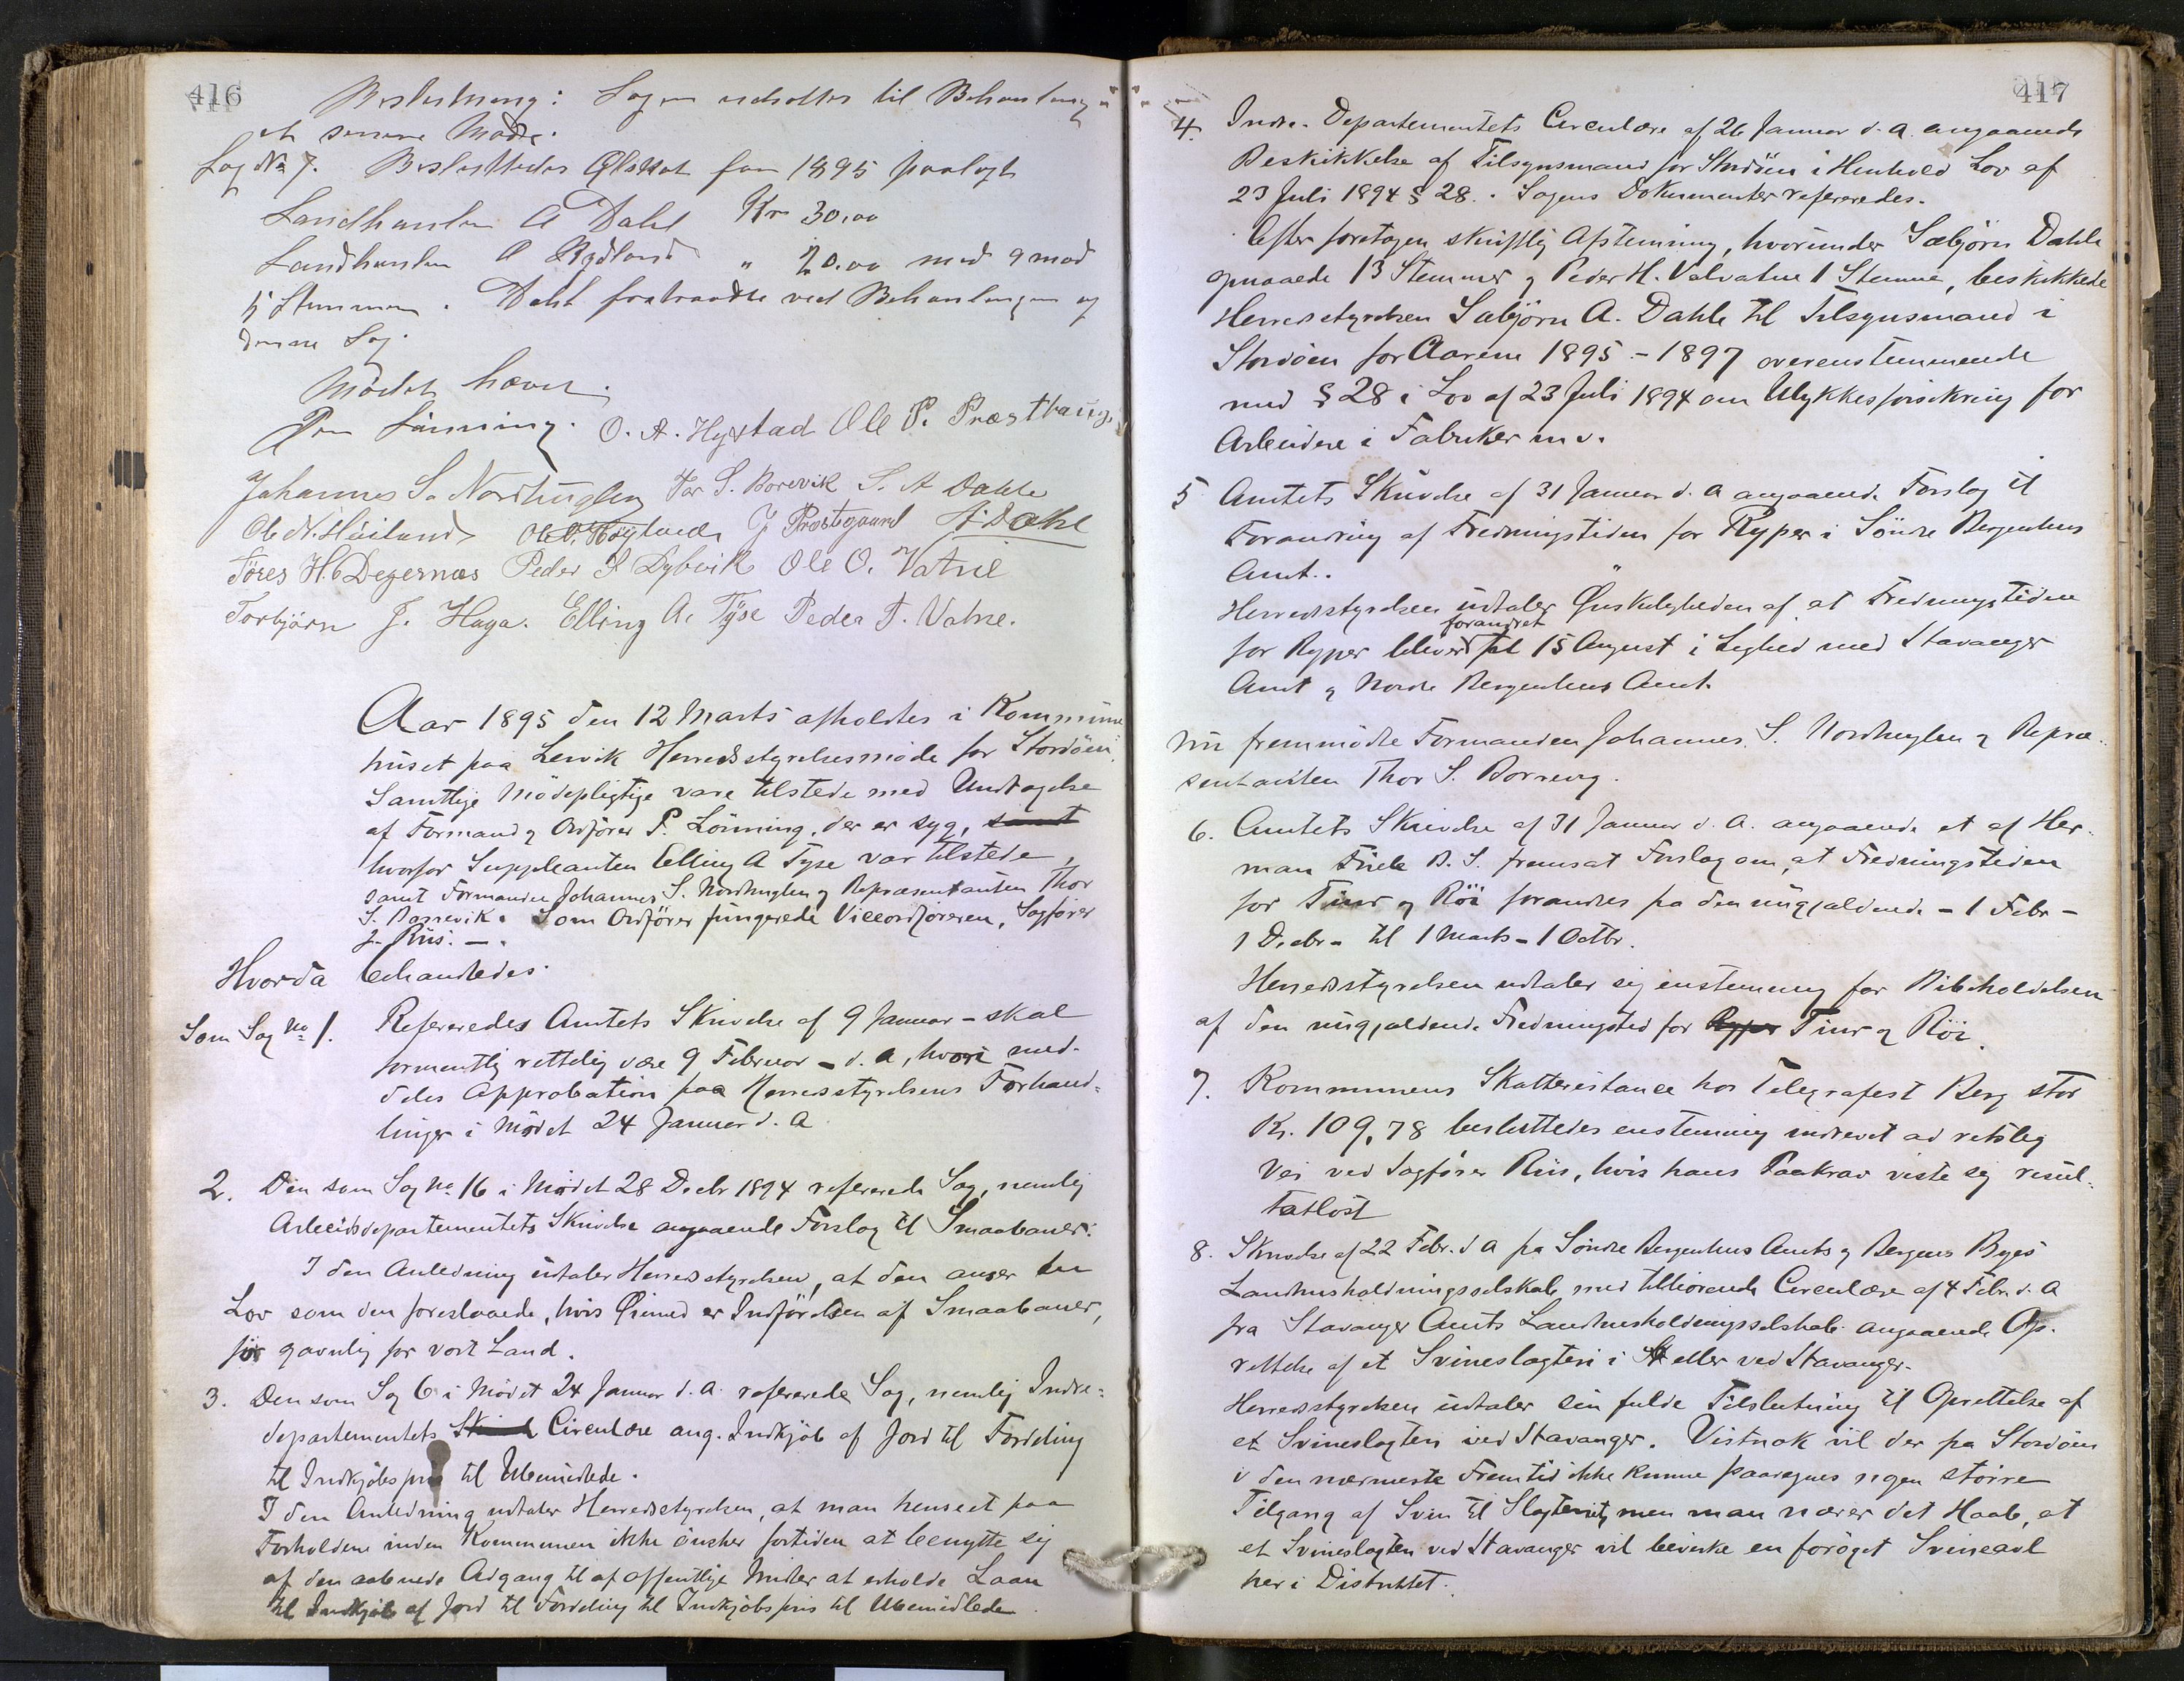 416
Beslutning: Sagen udsættes til Behandling
et senere Møde.
Sag No 7. Besluttedes Ølskat for 1895 paalagt
Landhandler A Dahl Kr 30,00
Landhandler A Rydland " 20.00 med 9 mod
5 Stemmer. Dahl fratraadte ved Behandlingen af
denne Sag.
Mødet hævet.
P Lönning. O. A. Hystad Ole P. Præsthaug,
Johannes S. Nordhuglen Tor S. Borevik S. A Dahle
Ole N. Höiland Ole O. Höyland J Prestgaard A. Dahl
Töres H. Degernæs Peder P Dybvik Ole O. Vatne
Torbjörn J. Haga. Elling A. Tyse Peder T. Vatne.
Aar 1895 den 12 Marts afholdtes i Kommune
huset paa Lervik Herredsstyrelsesmöde for Stordöen.
Samtlige Mödepligtige vare tilstede med Undtagelse
af Formand og Ordförer P. Lönning, der er syg, samt
hvorfor Suppleanten Elling A Tyse var tilstede,
samt Formanden Johannes S. Nordhuglen og Repræsentanten Thor
S. Borrevik. Som Ordförer fungerede Viceordföreren, Sagförer
J. Riis. —.
Hvorda behandledes:
Som Sag No 1. Refereredes Amtets Skrivelse af 9 Januar - skal
formentlig rettelig være 9 Februar - d. A, hvori med-
deles Approbation paa Herredsstyrelsens Forhand=
linger i Mödet 24 Januar d. A
2. Den som Sag No 16 i Mödet 28 Decbr 1894 refererede Sag, nemlig
Arbeidsdepartementets Skrivelse angaaende Forslag til Smaabaner:
I den Anledning udtaler Herredsstyrelsen, at den anser en
Lov som den foreslaaede, hvis Öiemed er Indförelsen af Smaabaner,
for gavnlig for vort Land.
3. Den som Sag 6 i Mödet 24 Januar d. A. refererede Sag, nemlig Indre=
departementets Circulære ang. Indkjöb af Jord til Fordeling
til Indkjöbspris til Ubemidlede.
I den Anledning udtaler Herredsstyrelsen, at man henseet paa
Forholdene inden Kommunen ikke önsker fortiden at benytte sig
af den aabnede Adgang til af offentlige Midler at erholde Laan
til Indkjöb af Jord til Fordeling til Indkjöbspris til Ubemidlede
417
4. Indre-Departementets Circulære af 26 Januar d. A. angaaende
Beskikkelse af Tilsynsmand for Stordöen i Henhold Lov af
23 Juli 1894 § 28. Sagens Dokumenter refereredes.
Efter foretagen skriftlig Afstemning, hvorunder Sæbjörn Dahle
opnaaede 13 Stemmer og Peder H. Valvatne 1 Stemme, beskikkede
Herredsstyrelsen Sæbjörn A. Dahle til Tilsynsmand i
Stordöen for Aarene 1895 - 1897 overensstemmende
med § 28 i Lov af 23 Juli 1894 om Ulykkesforsikring for
Arbeidere i Fabriker m. v.
5 Amtets Skrivelse af 31 Januar d. A angaaende Forslag til
Forandring af Fredningstiden for Ryper i Söndre Bergenhus
Amt.
Herredsstyrelsen udtaler Önskeligheden af, at Fredningstiden
for Ryper bliver forandret til 15 August i Lighed med Stavanger
Amt og Nordre Bergenhus Amt.
Nu fremmödte Formanden Johannes S. Nordhuglen og Repræ-
sentanten Thor S. Borrevig.
6. Amtets Skrivelse af 31 Januar d. A. angaaende et af Her-
man Friele B. S. fremsat Forslag om, at Fredningstiden
for Tiur og Röi forandres fra den nugjældende - 1 Febr -
1 Decbr - til 1 Marts - 1 Octbr.
Herredsstyrelsen udtaler sig enstemmig for Bibeholdelsen
af den nugjældende Fredningstid for Ryper Tiur og Röi.
7. Kommunens Skatterestance hos Telegrafest Berg stor
Kr. 109,78 besluttedes enstemmig inddrevet ad retslig
Vei ved Sagförer Riis, hvis hans Paakrav viste sig resul-
tatlöst
8. Skrivelse af 22 Febr. d A fra Söndre Bergenhus Amts og Bergens Byes
Landhusholdningsselskab med tilhörende Circulære af 4 Febr. d. A
fra Stavanger Amts Landhusholdningsselskab angaaende Op-
rettelse af et Svineslagteri i eller ved Stavanger.
Herredsstyrelsen udtaler sin fulde Tilslutning til Oprettelse af
et Svineslagteri ved Stavanger. Vistnok vil der fra Stordöen
i den nærmeste Fremtid ikke kunne paaregnes nogen större
Tilgang af Svin til Slagteriet, men man nærer det Haab, at
et Svineslagteri ved Stavanger vil bevirke en foröget Svineavl
her i Distriktet.